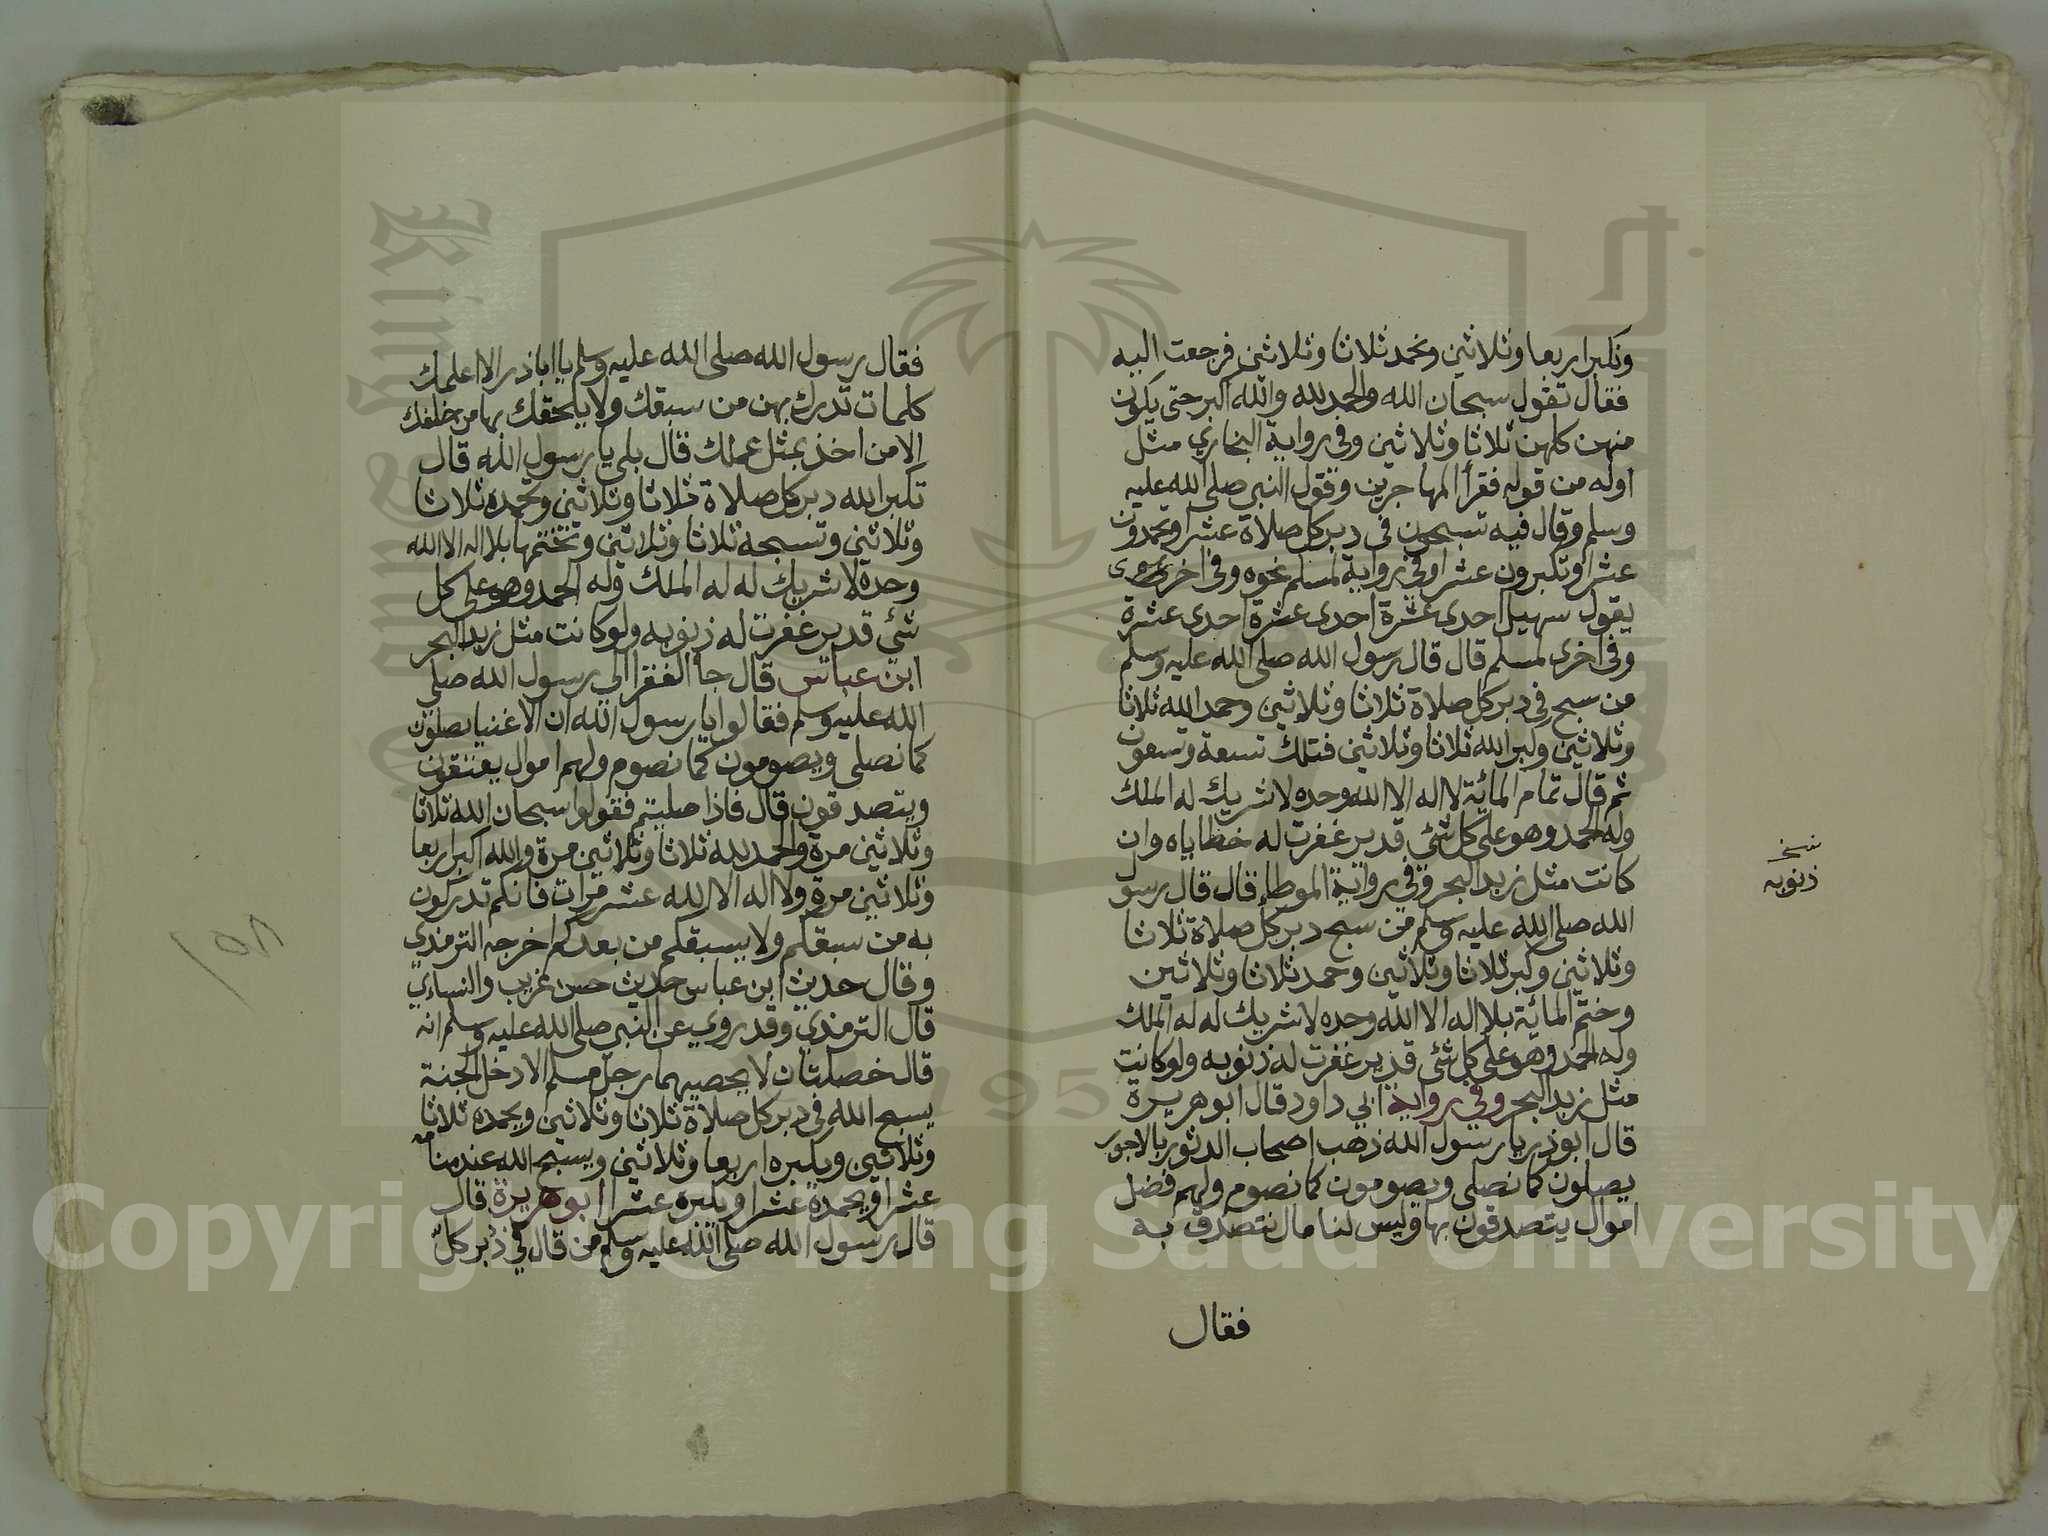 ونكبر اربعا وثلاثين ونحمد ثلاثا وثلاثين فرجعت اليه
فقال تقول سبحان الله والحمد لله والله اكبر حتى يكون
منهن كلهن ثلاثا وثلاثين وفي رواية البخاري مثل
اوله من قوله فقرأ المهاجرين وقول النبي صلى الله عليه
وسلم وقال فيه تسبحون في دبر كل صلاة عشرا وتحمدون
عشرا وتكبرون عشرا وفي رواية لمسلم نحوه وفي اخرى
يقول سهيل احدى عشرة احدى عشرة احدى عشرة
وفي اخرى لمسلم قال قال رسول الله صلى الله عليه وسلم
من سبح في دبر كل صلاة ثلاثا وثلاثين وحمد الله ثلاثا
وثلاثين وكبر الله ثلاثا وثلاثين فتلك تسعة وتسعون
ثم قال تمام المائة لا اله الا الله وحده لا شريك له الملك
وله الحمد وهو على كل شئ قدير غفرت له خطاياه وان
كانت مثل زبد البحر وفي رواية الموطاء قال قال رسول
الله صلى الله عليه وسلم من سبح دبر كل صلاة ثلاثا
وثلاثين وكبر ثلاثا وثلاثين وحمد ثلاثا وثلاثين
وختم المائة بلا اله الا الله وحده لا شريك له له الملك
وله الحمد وهو على كل شئ قدير غفرت له ذنوبه ولو كانت
مثل زبد البحر وفي رواية ابي داود قال ابو هريرة
قال ابو ذر يا رسول الله ذهب اصحاب الدثور بالاجور
يصلون كما نصلى ويصومون كما نصوم ولهم فضل
اموال يتصدقون بها وليس لنا مال نتصدق به
فقال
نسخ
ذنوبه
فقال رسول الله صلى الله عليه وسلم يا ابا ذر الا اعلمك
كلمات تدرك بهن من سبقك ولا يلحقك بها من خلفك
الا من اخذ بمثل عملك قال بلى يا رسول الله قال
تكبر الله دبر كل صلاة ثلاثا وثلاثين وتحمده ثلاثا
وثلاثين وتسبحه ثلاثا وثلاثين وتختمها بلا اله الا الله
وحده لا شريك له له الملك وله الحمد وهو على كل
شئ قدير غفرت له ذنوبه ولو كانت مثل زبد البحر
ابن عباس قال جا الفقرا الي رسول الله صلى
الله عليه وسلم فقالوا يا رسول الله ان الاغنيا يصلون
كما نصلى ويصومون كما نصوم ولهم اموال يعتقون
ويتصدقون قال فاذا صليتم فقولوا سبحان الله ثلاثا
وثلاثين مرة والحمد لله ثلاثا وثلاثين مرة والله اكبر اربعا
وثلاثين مرة ولا اله الا الله عشر مرات فانكم تدركون
به من سبقكم ولا يسبقكم من بعدكم اخرجه الترمذي
وقال حديث ابن عباس حديث حسن غريب والنساءي
قال الترمذي وقد روي عن النبي صلى الله عليه وسلم انه
قال خصلتان لا يحصيهما رجل مسلم الا دخل الجنة
يسبح الله في دبر كل صلاة ثلاثا وثلاثين ويحمده ثلاثا
وثلاثين ويكبره اربعا وثلاثين ويسبح الله عند منامه
عشرا ويحمده عشرا ويكبره عشرا ابو هريرة قال
قال رسول الله صلى الله عليه وسلم من قال في دبر كل
١٥٨
King Saud
1957
Copyright © King Saud University